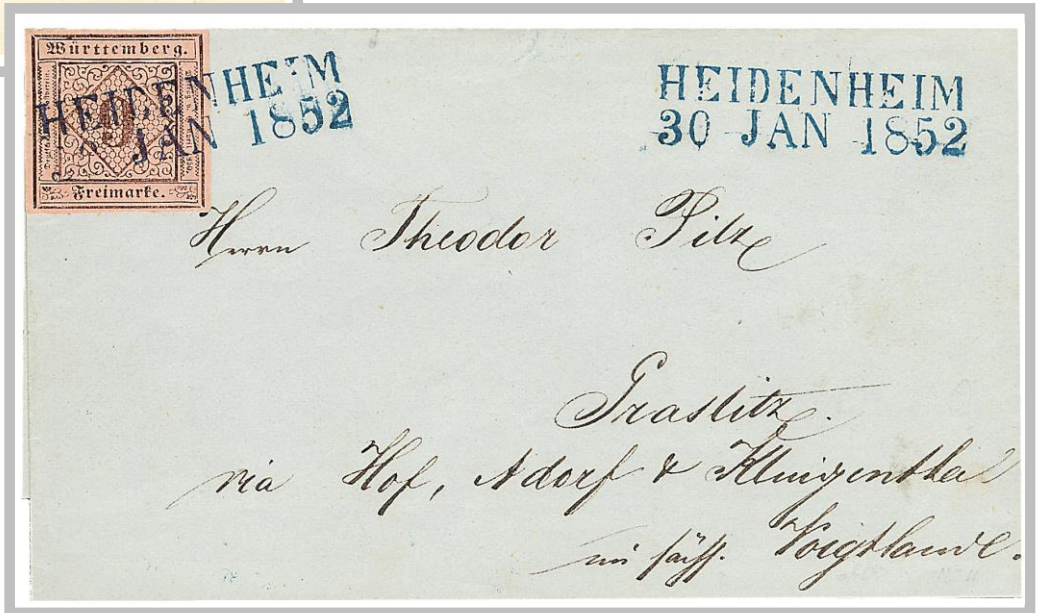 Württemberg.
9
Freimarke.
HEIDENHEIM
JAN 1852
HEIDENHEIM
30 JAN 1852
Herrn Theodor Pilz
Graslitz.
via Hof, Adorf & Klingenthal
im sächs. Voigtlande.